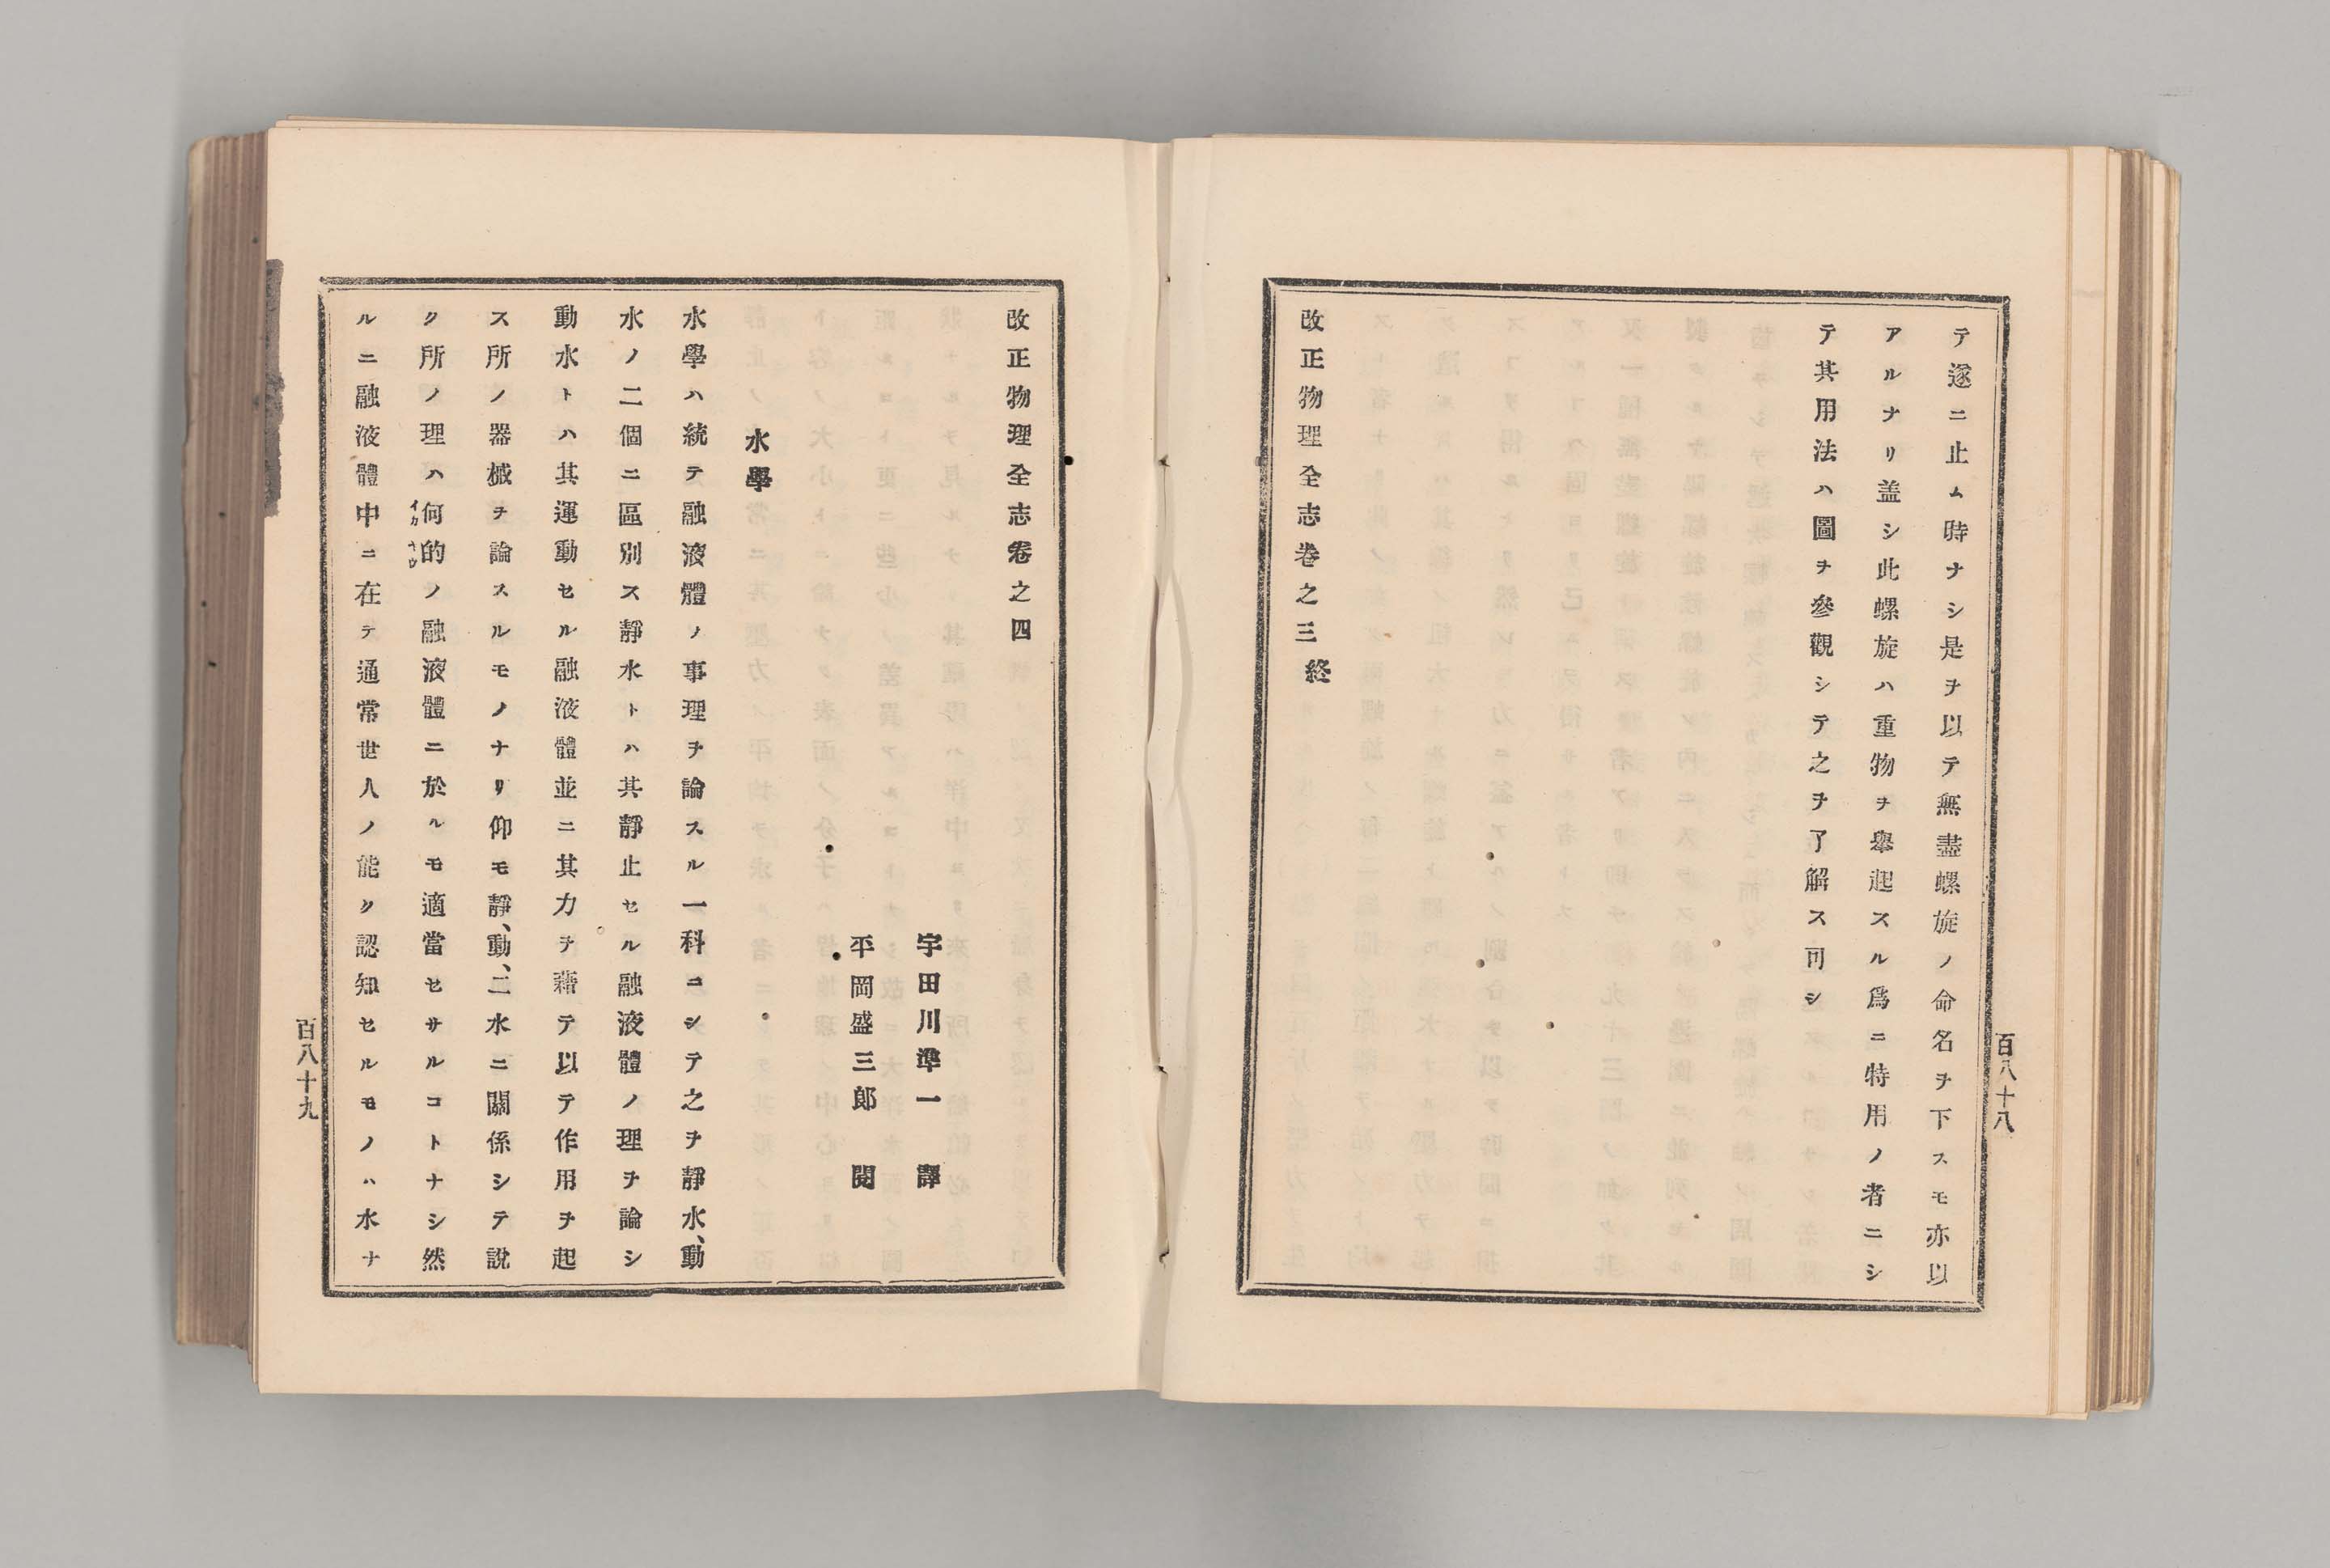 テ遂ニ止ム時ナシ是ヲ以テ無盡螺旋ノ命名ヲ下スモ亦以
アルナリ盖シ此螺旋ハ重物ヲ擧起スル爲ニ特用ノ者ニシ
テ其用法ハ圖ヲ參觀シテ之ヲ了解ス可シ
改正物理全志卷之三終
百八十八
改正物理全志卷之四
宇田川準一 譯
平岡盛三郎 閲
水學
水學ハ統テ融液體ノ事理ヲ論スル一科ニシテ之ヲ靜水、動
水ノ二個ニ區別ス靜水トハ其靜止セル融液體ノ理ヲ論シ
動水トハ其運動セル融液體並ニ其力ヲ藉テ以テ作用ヲ起
ス所ノ器械ヲ論スルモノナリ仰モ靜、動、二水ニ關係シテ說
ク所ノ理ハ何的ノ融液體ニ於ルモ適當セサルコトナシ然
ルニ融液體中ニ在テ通常世人ノ能ク認知セルモノハ水ナ
百八十九